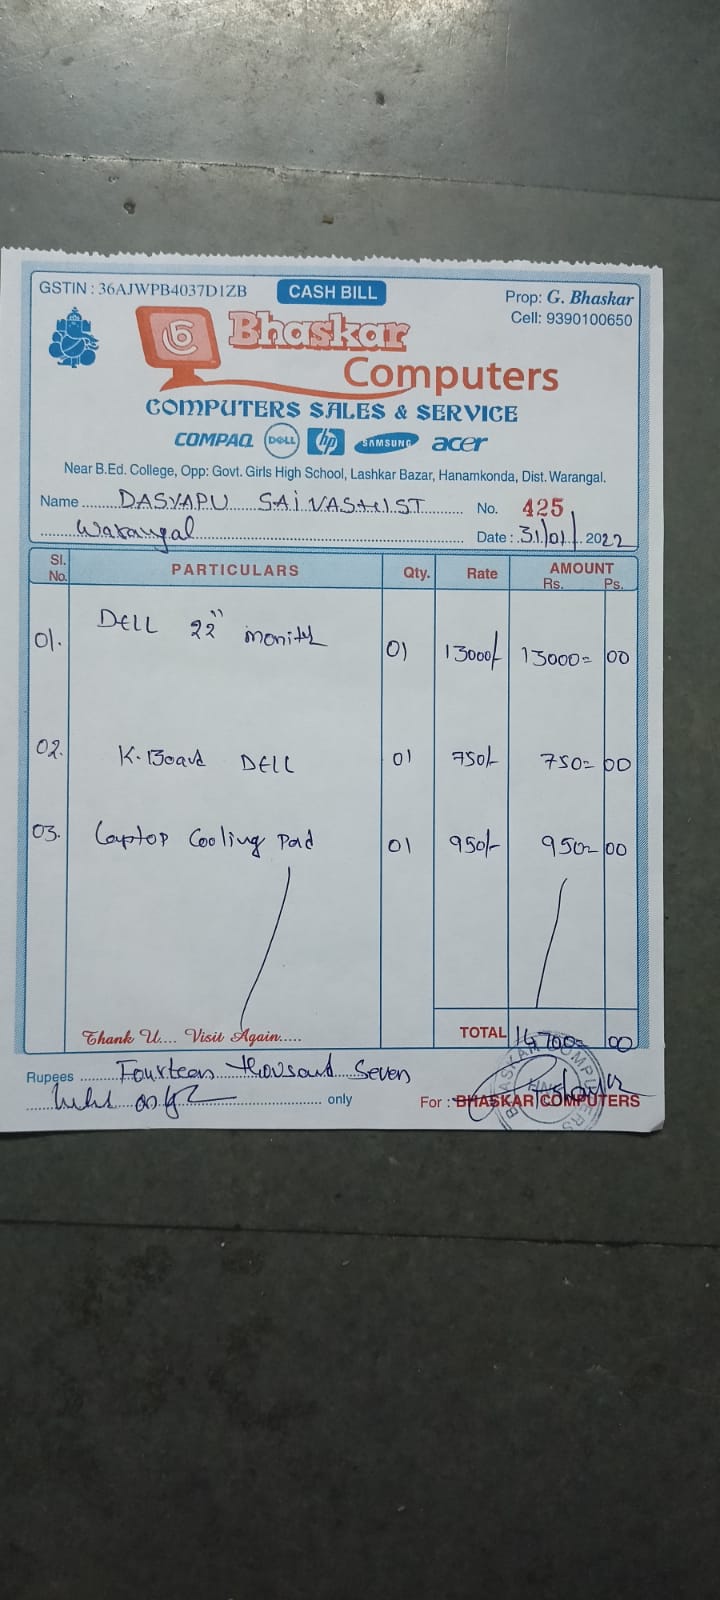 GSTIN : 36AJWPB4037D1ZB CASH BILL Prop: G. Bhaskar
Cell: 9390100650
Bhaskar
Computers
COMPUTERS SALES & SERVICE
COMPAQ DELL hp SAMSUNG acer
Near B.Ed. College, Opp: Govt. Girls High School, Lashkar Bazar, Hanamkonda, Dist. Warangal.
Name DASYAPU SAI VASHIST No. 425
Warangal Date : 31/01/2022
Sl. No. PARTICULARS Qty. Rate AMOUNT Rs. Ps.
01. DELL 22" monitor 01 13000/- 13000= 00
02. K.Board DELL 01 750/- 750= 00
03. Laptop Cooling Pad 01 950/- 950= 00
Thank U.... Visit Again..... TOTAL 14,700= 00
Rupees Fourteen thousand Seven
only For : BHASKAR COMPUTERS
BHASKAR COMPUTERS